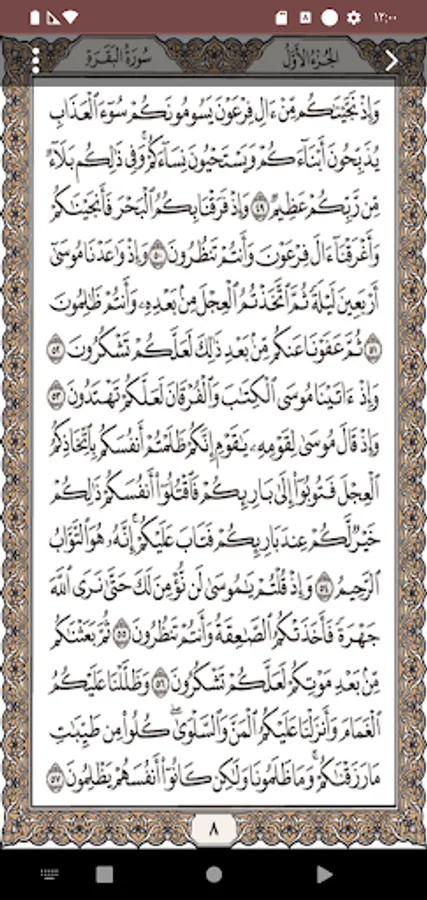 ١٢:٠٠
الجزء الأول سورة البقرة
وَإِذْ نَجَّيْنَٰكُم مِّنْ ءَالِ فِرْعَوْنَ يَسُومُونَكُمْ سُوٓءَ ٱلْعَذَابِ
يُذَبِّحُونَ أَبْنَآءَكُمْ وَيَسْتَحْيُونَ نِسَآءَكُمْ ۚ وَفِى ذَٰلِكُم بَلَآءٌ
مِّن رَّبِّكُمْ عَظِيمٌ ٤٩ وَإِذْ فَرَقْنَا بِكُمُ ٱلْبَحْرَ فَأَنجَيْنَٰكُمْ
وَأَغْرَقْنَآ ءَالَ فِرْعَوْنَ وَأَنتُمْ تَنظُرُونَ ٥٠ وَإِذْ وَٰعَدْنَا مُوسَىٰٓ
أَرْبَعِينَ لَيْلَةً ثُمَّ ٱتَّخَذْتُمُ ٱلْعِجْلَ مِنۢ بَعْدِهِۦ وَأَنتُمْ ظَٰلِمُونَ
٥١ ثُمَّ عَفَوْنَا عَنكُم مِّنۢ بَعْدِ ذَٰلِكَ لَعَلَّكُمْ تَشْكُرُونَ ٥٢
وَإِذْ ءَاتَيْنَا مُوسَى ٱلْكِتَٰبَ وَٱلْفُرْقَانَ لَعَلَّكُمْ تَهْتَدُونَ ٥٣
وَإِذْ قَالَ مُوسَىٰ لِقَوْمِهِۦ يَٰقَوْمِ إِنَّكُمْ ظَلَمْتُمْ أَنفُسَكُم بِٱتِّخَاذِكُمُ
ٱلْعِجْلَ فَتُوبُوٓا۟ إِلَىٰ بَارِئِكُمْ فَٱقْتُلُوٓا۟ أَنفُسَكُمْ ذَٰلِكُمْ
خَيْرٌ لَّكُمْ عِندَ بَارِئِكُمْ فَتَابَ عَلَيْكُمْ ۚ إِنَّهُۥ هُوَ ٱلتَّوَّابُ
ٱلرَّحِيمُ ٥٤ وَإِذْ قُلْتُمْ يَٰمُوسَىٰ لَن نُّؤْمِنَ لَكَ حَتَّىٰ نَرَى ٱللَّهَ
جَهْرَةً فَأَخَذَتْكُمُ ٱلصَّٰعِقَةُ وَأَنتُمْ تَنظُرُونَ ٥٥ ثُمَّ بَعَثْنَٰكُم
مِّنۢ بَعْدِ مَوْتِكُمْ لَعَلَّكُمْ تَشْكُرُونَ ٥٦ وَظَلَّلْنَا عَلَيْكُمُ
ٱلْغَمَامَ وَأَنزَلْنَا عَلَيْكُمُ ٱلْمَنَّ وَٱلسَّلْوَىٰ ۖ كُلُوا۟ مِن طَيِّبَٰتِ
مَا رَزَقْنَٰكُمْ ۖ وَمَا ظَلَمُونَا وَلَٰكِن كَانُوٓا۟ أَنفُسَهُمْ يَظْلِمُونَ ٥٧
٨